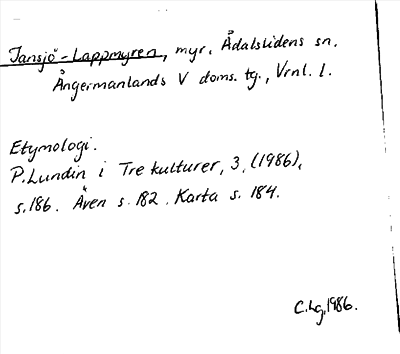 Jansjö-Lappmyren, myr, Ådalslidens sn.
Ångermanlands V doms. tg., Vrnl. l.
Etymologi.
P. Lundin i Tre kulturer, 3, (1986),
s. 186. Även s. 182. Karta s. 184.
C. Lg. 1986.